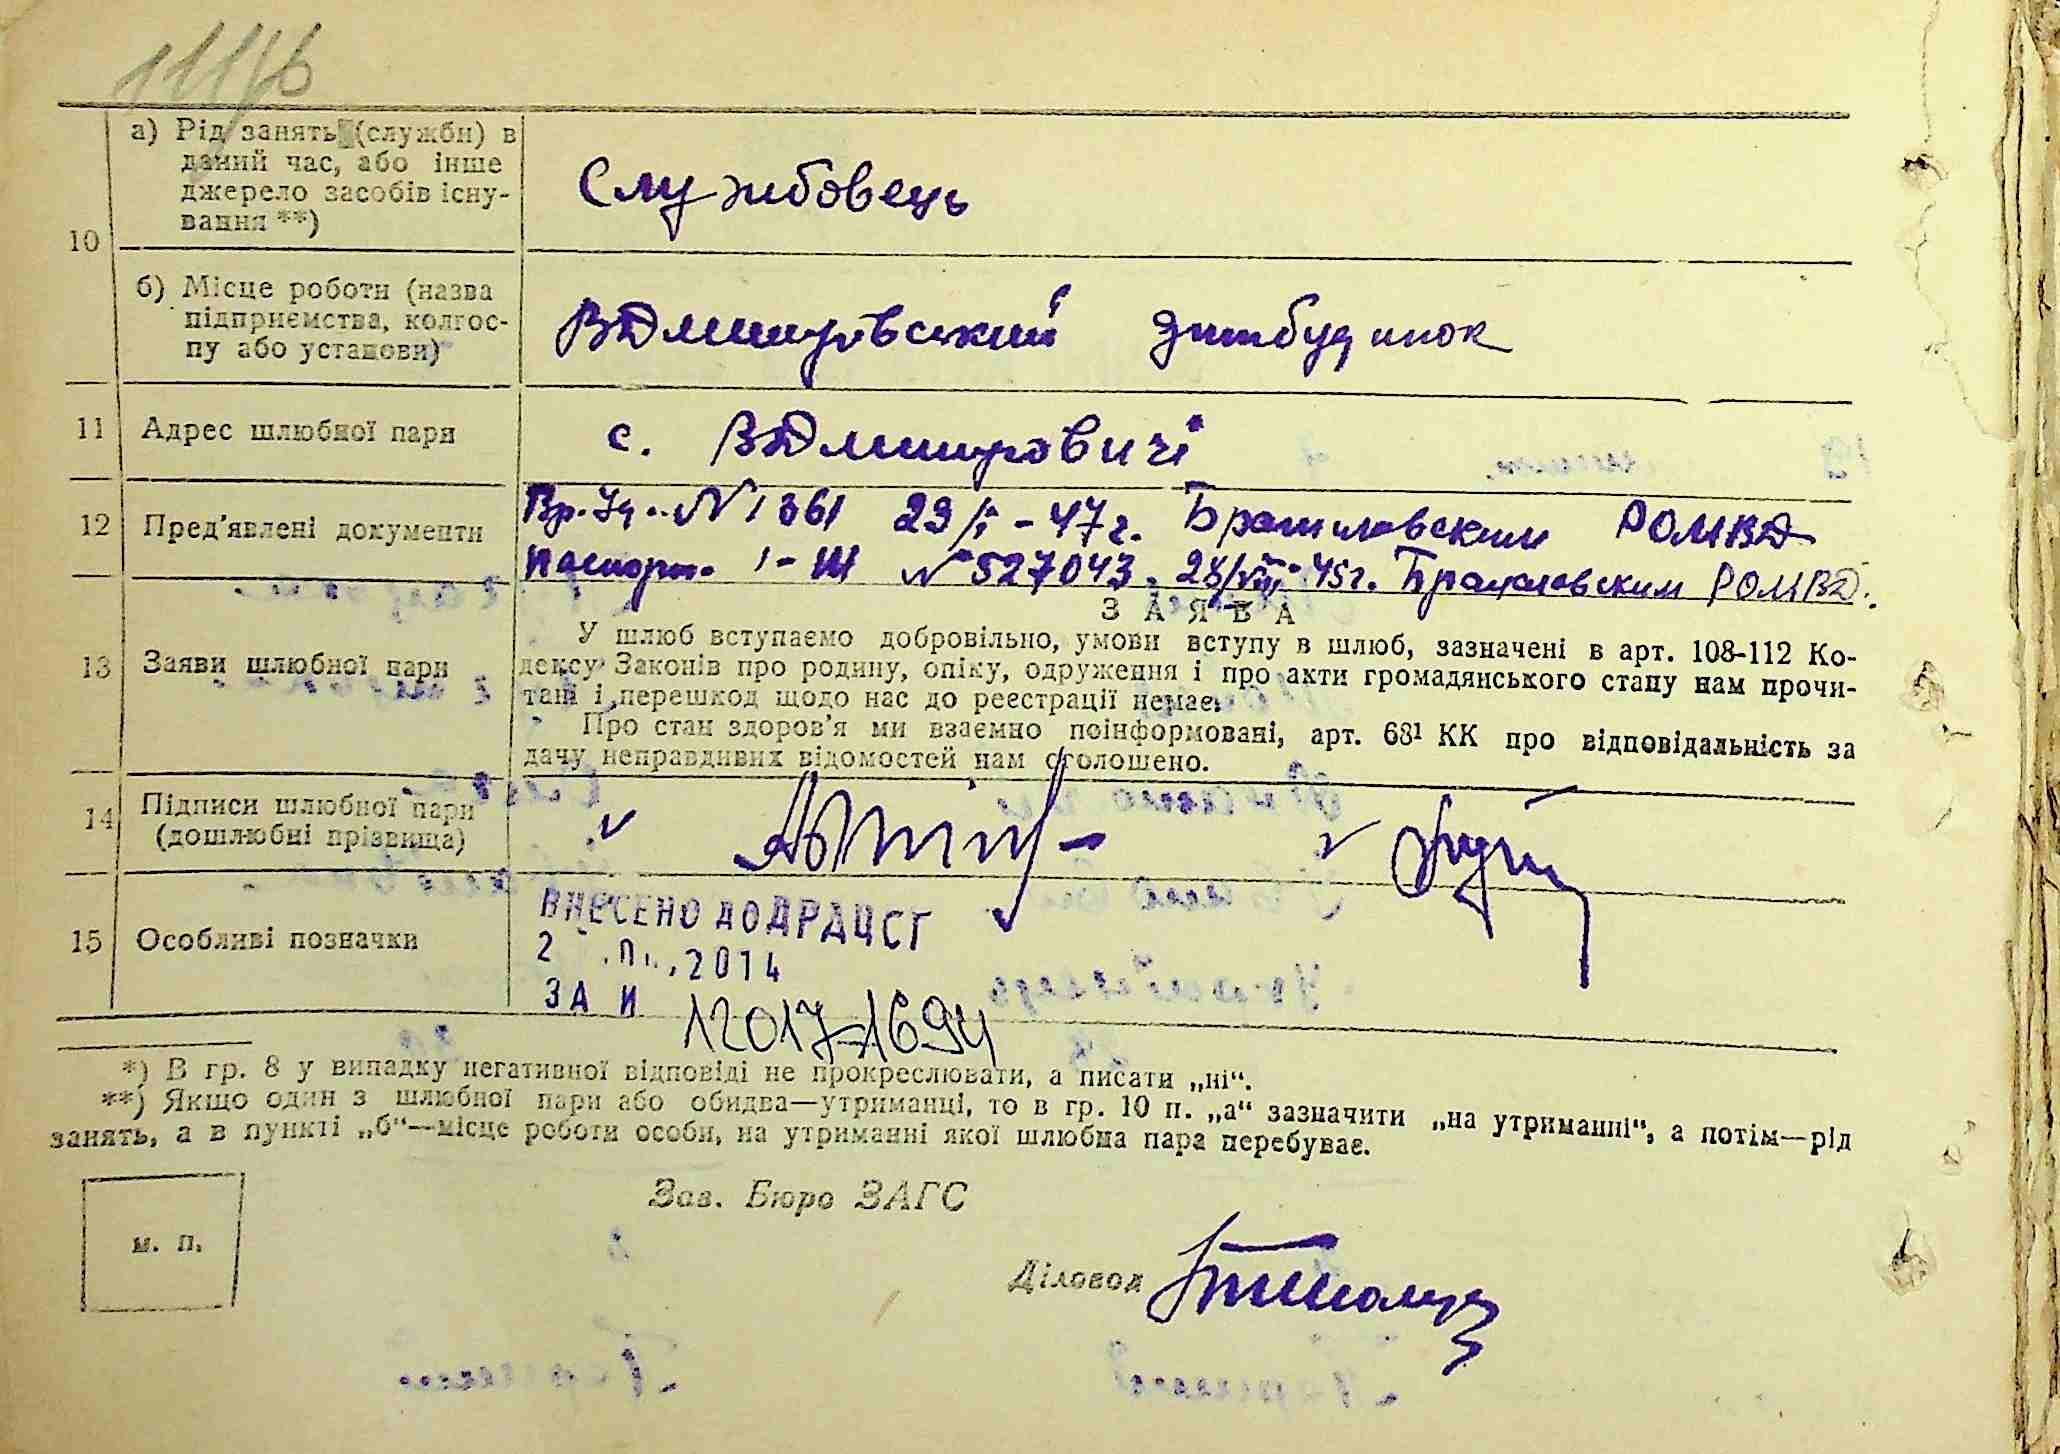 10
а) Рід занять (служби) в
даний час, або інше
джерело засобів існу-
вання **)
Службовець
б) Місце роботи (назва
підприємства, колгос-
пу або установи)
ВДмитровський дитбудинок
11 Адрес шлюбної пари
с. ВДмитровичі
12 Пред'явлені документи
Вр. Уд. № 1361 29/I-47г. РОМВД
Паспорт I-Ш № 527043. 28/VIII-45г. РОМВД.
13 Заяви шлюбної пари
ЗАЯВА
У шлюб вступаємо добровільно, умови вступу в шлюб, зазначені в арт. 108-112 Ко-
дексу Законів про родину, опіку, одруження і про акти громадянського стану нам прочи-
тані і перешкод щодо нас до реєстрації немає.
Про стан здоров'я ми взаємно поінформовані, арт. 68¹ КК про відповідальність за
дачу неправдивих відомостей нам оголошено.
14 Підписи шлюбної пари
(дошлюбні прізвища)
15 Особливі позначки
ВНЕСЕНО ДО ДРАЦСГ
2 2014
ЗА И 12017-1694
*) В гр. 8 у випадку негативної відповіді не прокреслювати, а писати „ні“.
**) Якщо один з шлюбної пари або обидва—утриманці, то в гр. 10 п. „а“ зазначити „на утриманні“, а потім—рід
занять, а в пункті „б“—місце роботи особи, на утриманні якої шлюбна пара перебуває.
Зав. Бюро ЗАГС
м. п.
Діловод